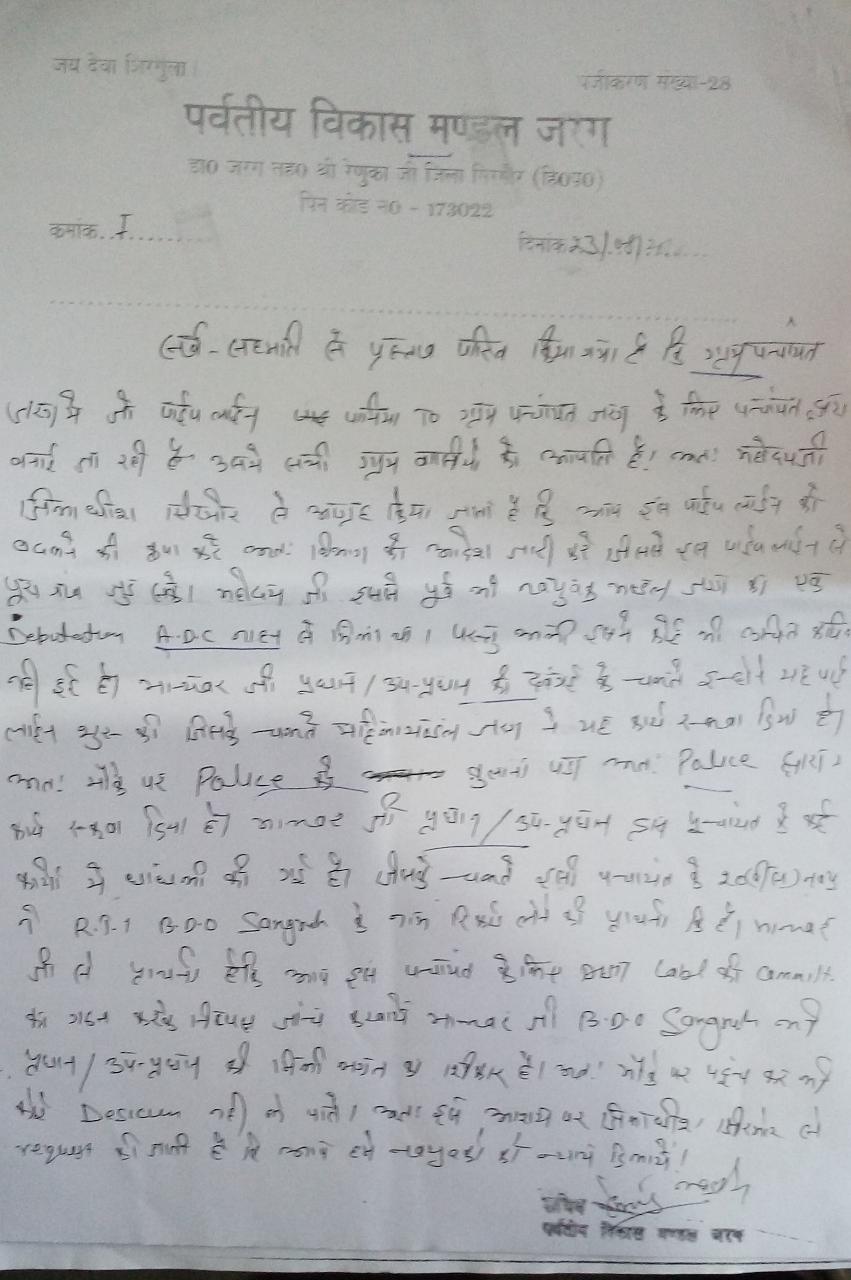 जय देवा शिरगुला।
पंजीकरण संख्या-28
पर्वतीय विकास मण्डल जरग
डा0 जरग तह0 श्री रेणुका जी जिला सिरमौर (हि0प्र0)
पिन कोड न0 - 173022
क्रमांक..I.........
दिनांक 23/
सर्व-सहमति से प्रस्ताव पारित किया गया है कि ग्राम पन्चायत
जरग मे जो पाईप लाईन To ग्राम पन्चायत जरग के लिए पन्चायत द्वारा
बनाई जा रही है उसमे सभी ग्राम वासीयो को आपति है। अतः महोदय जी
जिलाधीश सिरमौर से आग्रह किया जाता है कि आप इस पाईप लाईन को
बदलने की कृपा करे अतः विभाग को आदेश जारी करे जिससे इस पाईप लाईन से
पूरा गांव जुड़ सके। महोदय जी इससे पूर्व भी नवयुवक मण्डल जरग का एक
Debutatum A.D.C नाहन से मिला था। परन्तु अभी इसमे कोई भी उचित
नही हुई है। मान्यवर जी प्रधान/उप-प्रधान की के चलते इन्होने यह पाईप
लाईन शुरू की जिसके चलते महिला मण्डल जरग ने यह कार्य रूकवा दिया है।
अतः मौके पर Police को बुलाना पडा अतः Police द्वारा
कार्य रूकवा दिया है। मान्यवर जी प्रधान/उप-प्रधान इस पन्चायत के कई
कार्यो मे धांधली की गई है। जिसके चलते इसी पन्चायत के
ने R.T.I B.D.O Sangrah के रिकार्ड लेने की प्रार्थना कि है। मान्यवर
जी से प्रार्थना है कि आप इस पन्चायत के लिए Label की Committ.
का गठन करके निष्पक्ष जांच करवाये मान्यवर जी B.D.O Sangrah भी
प्रधान/उप-प्रधान की मिली भगत का शिकार है। अतः मौके पर पहुंच कर भी
कोई Desicum नही ले पाते। अतः इस आशय पर जिलाधीश सिरमौर से
request की जाती है कि आप हमे नवयुवको को न्याय दिलाये।
सचिव
पर्वतीय विकास मण्डल जरग